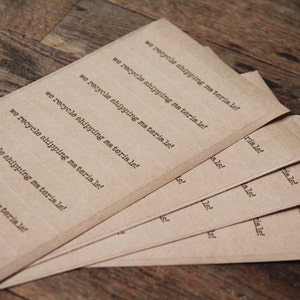 we recycle shipping materials!
we recycle shipping materials!
we recycle shipping materials!
we recycle shipping materials!
we recycle shipping materials!
we recycle shipping materials!
materials!
materials!
materials!
materials!